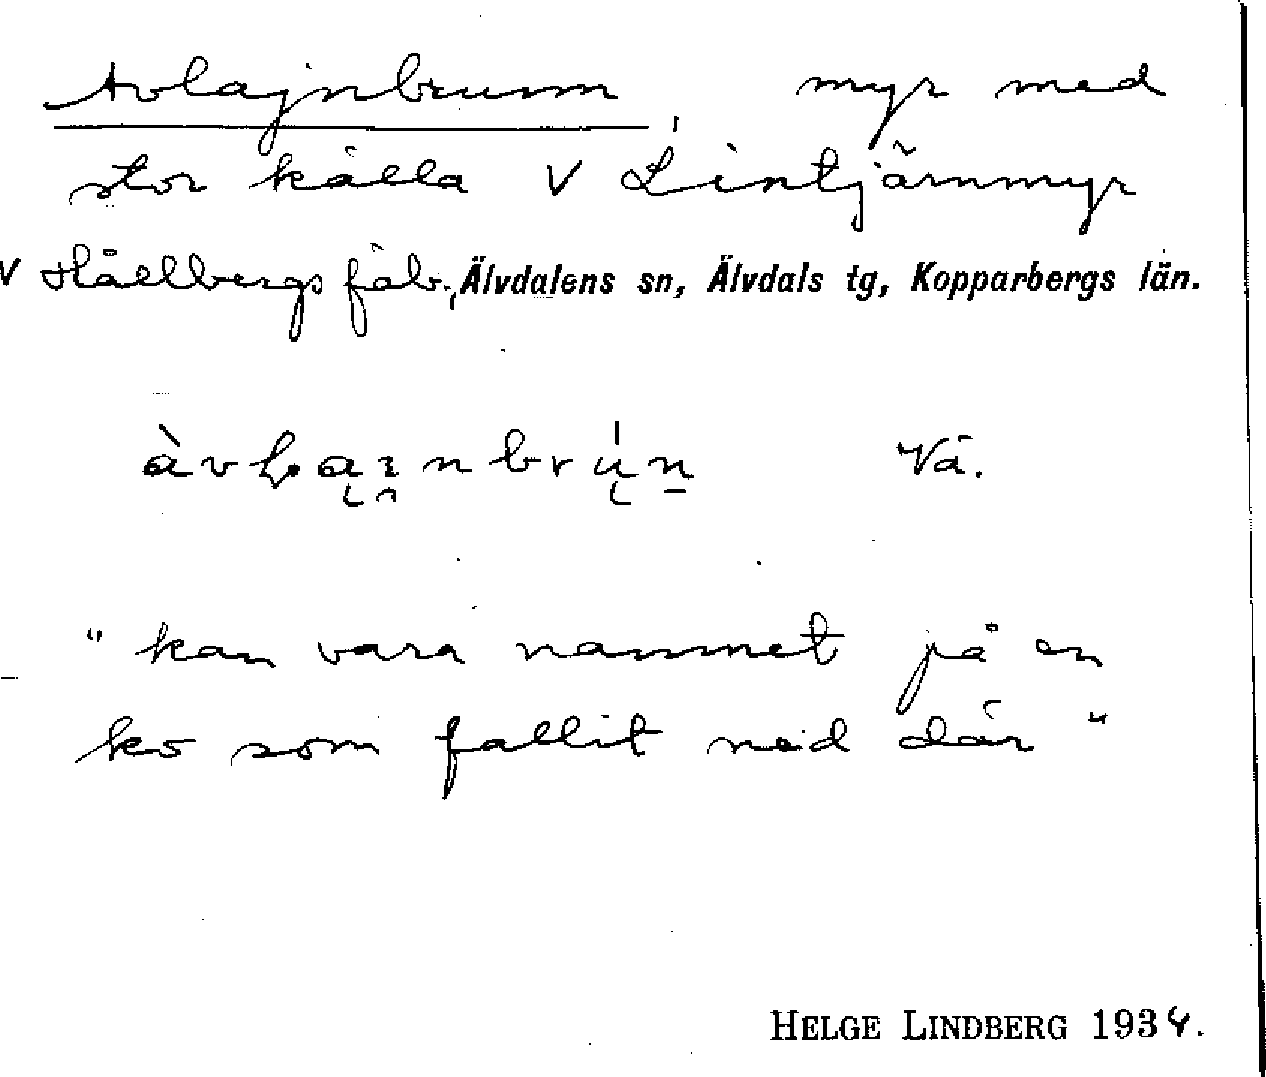 Avlajnbrunn, myr med
stor källa V Lintjärnmyr
V Hållbergs fäb., Älvdalens sn, Älvdals tg, Kopparbergs län.
Vä.
" kan vara namnet på en
ko som fallit ned där "
HELGE LINDBERG 1934.